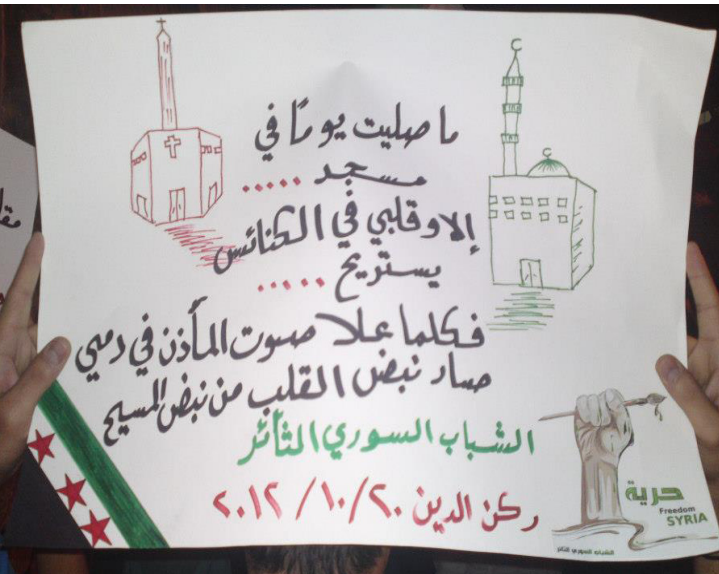 ما صليت يومًا في
مسجد .....
إلا وقلبي في الكنائس
يستريح .....
فكلما علا صوت المأذن في دمي
صار نبض القلب من نبض المسيح
الشباب السوري الثائر
ركن الدين ٢٠/١٠/٢٠١٢
حرية
Freedom
SYRIA
الشباب السوري الثائر